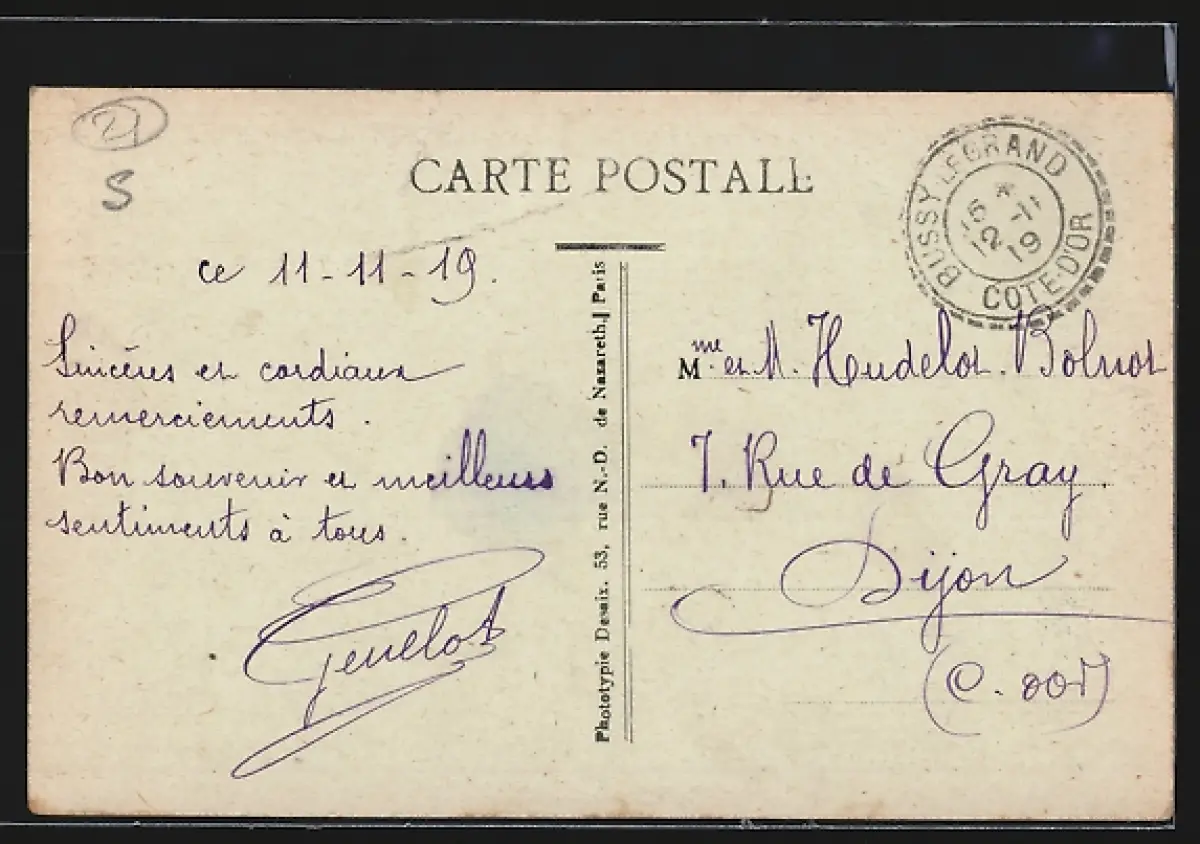 21
S
CARTE POSTALE
BUSSY-LE-GRAND
16 *
12-11
19
COTE-D'OR
ce 11-11-19.
Sincères et cordiaux
remerciements.
Bon souvenir et meilleurs
sentiments à tous.
Phototypie Desaix. 53, rue N.-D. de Nazareth, Paris
Mme et M. Hudelot-Bolnot
7. Rue de Gray.
Dijon
(C. d'or)